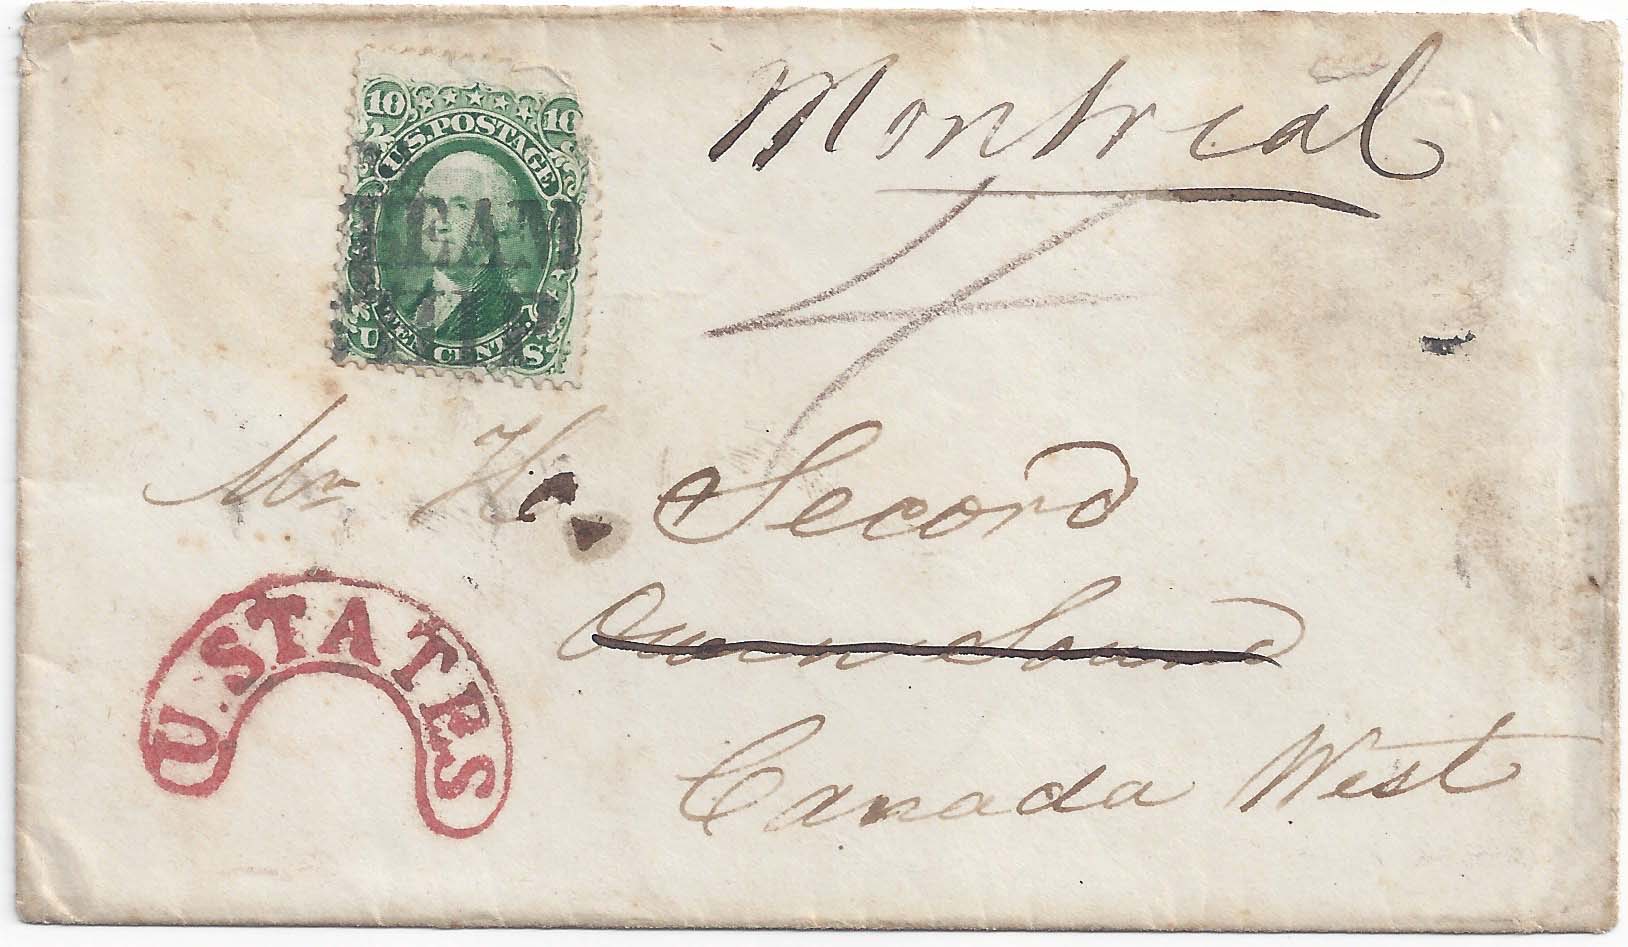 Montreal
10 10
U.S. POSTAGE
TEN CENTS.
U S
Mr H. Secord
Owen Sound
Canada West
U. STATES